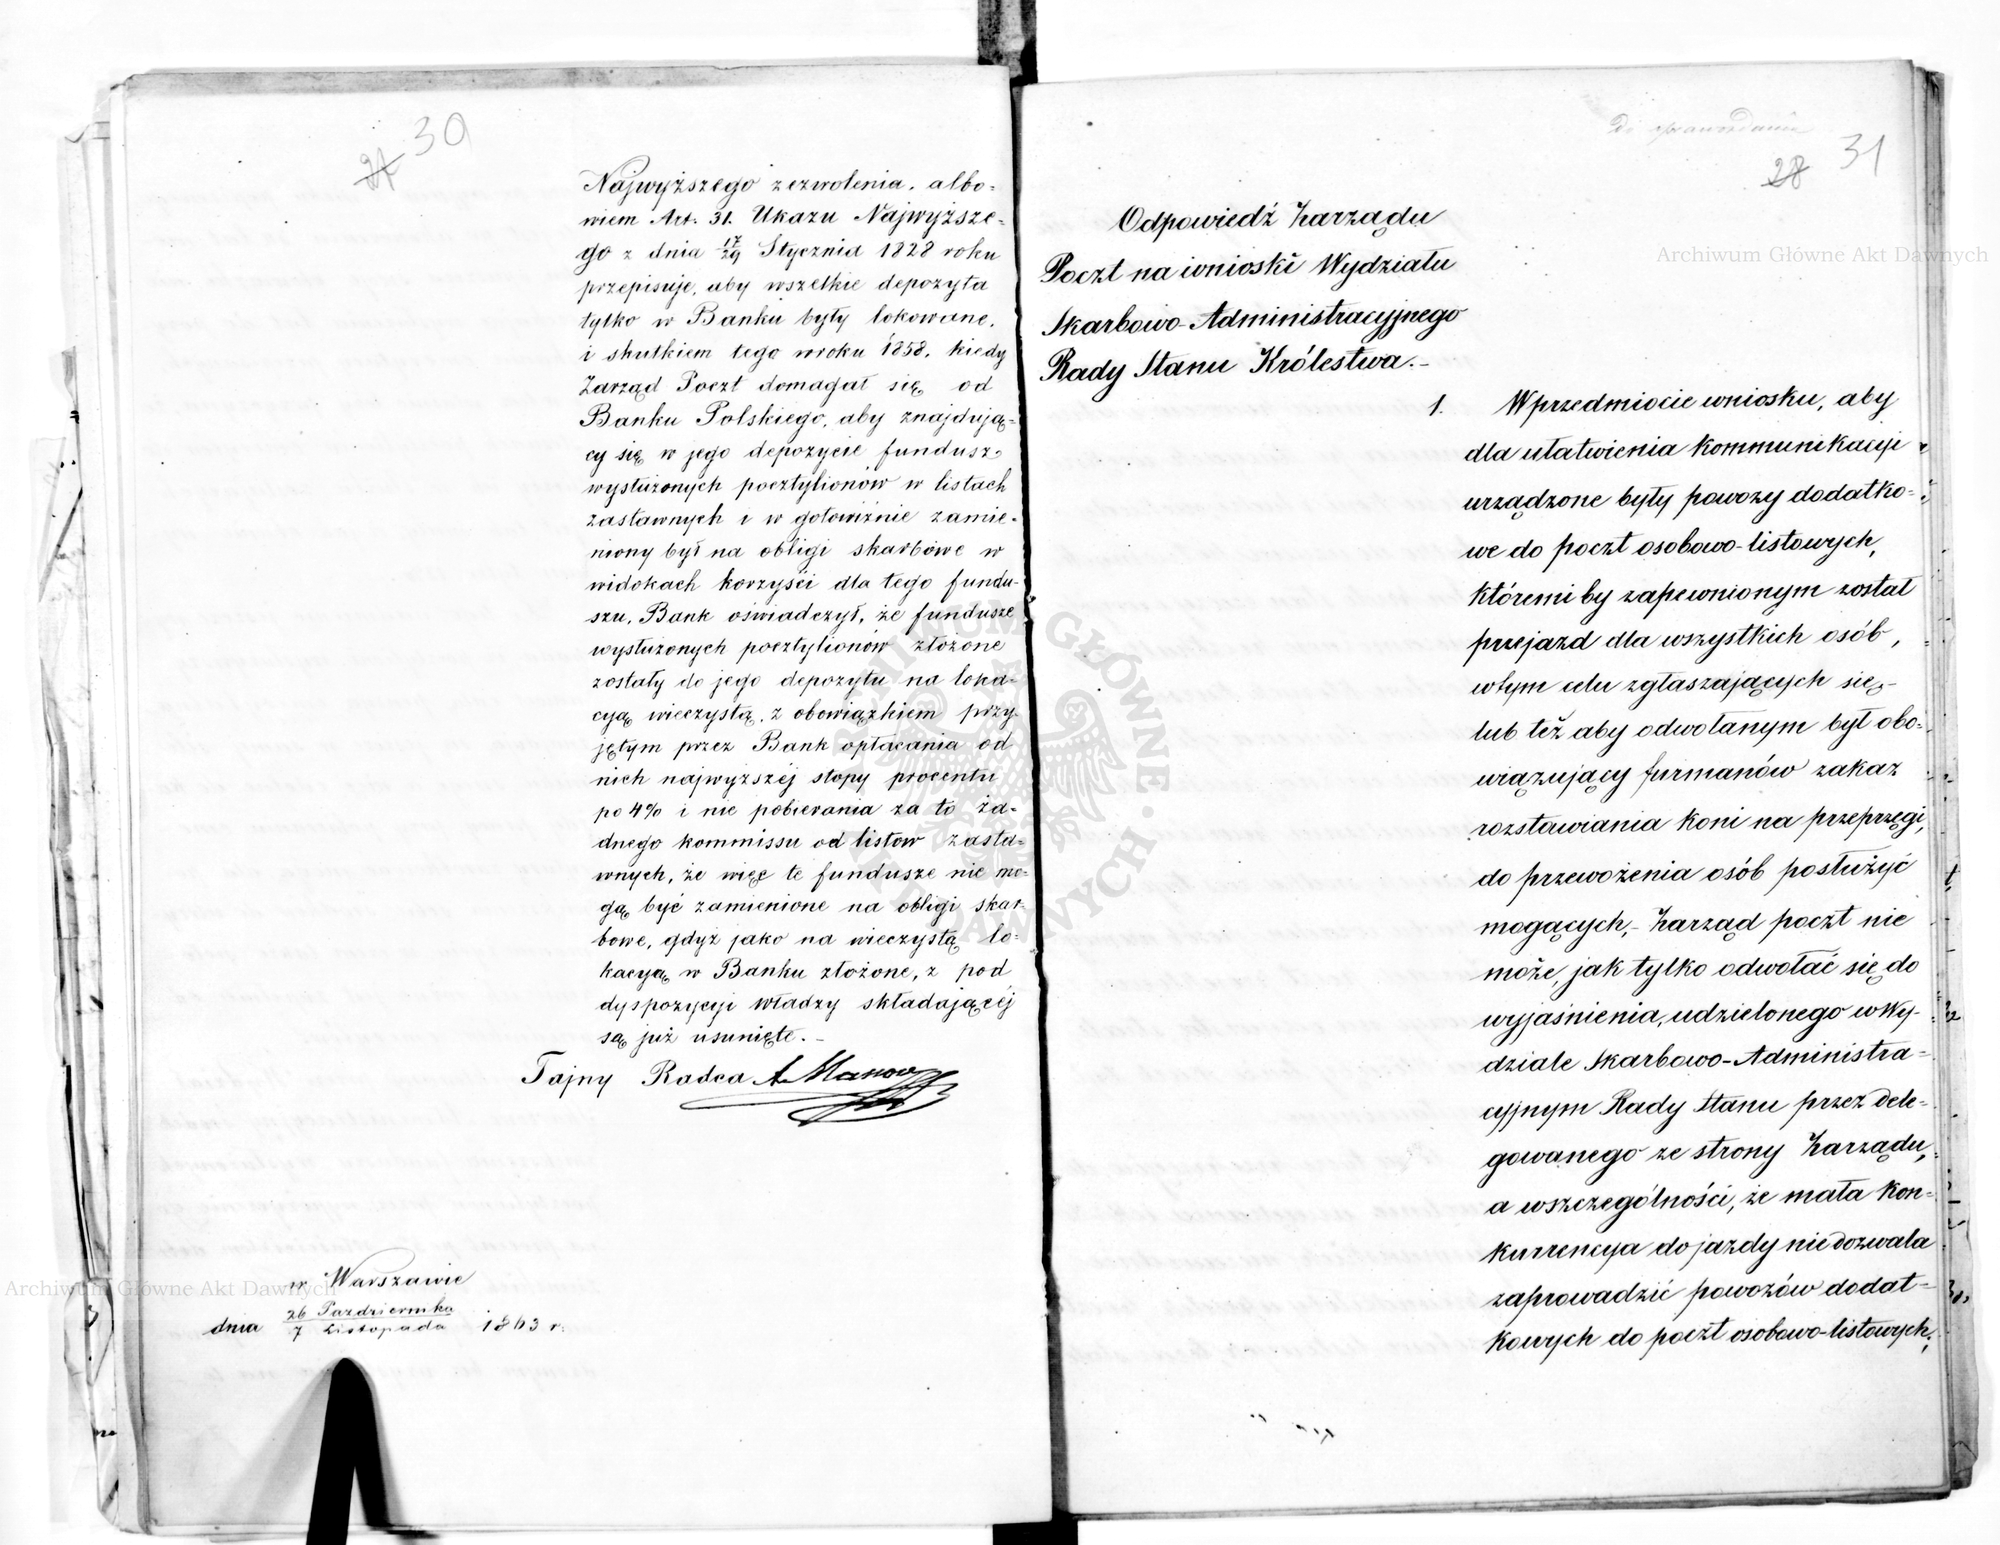 30
27
Najwyższego zezwolenia, albo-
wiem Art. 31. Ukazu Najwyższe-
go z dnia 17/29 Stycznia 1828 roku
przepisuje, aby wszelkie depozyta
tylko w Banku były lokowane,
i skutkiem tego wroku 1858, kiedy
Zarząd Poczt domagał się od
Banku Polskiego, aby znajdują-
cy się w jego depozycie fundusz
wysłużonych pocztylionów w listach
zastawnych i w gotowiźnie zamie-
niony był na obligi skarbowe w
widokach korzyści dla tego fundu-
szu, Bank oświadczył, że fundusze
wysłużonych pocztylionów złożone
zostały do jego depozytu na loka-
cyą wieczystą, z obowiązkiem przy-
jętym przez Bank opłacania od
nich najwyższéj stopy procentu
po 4% i nie pobierania za to ża-
dnego kommissu od listów zasta-
wnych, że więc te fundusze nie mo-
gą być zamienione na obligi skar-
bowe, gdyż jako na wieczystą lo-
kacyą w Banku złożone, z pod
dyspozycyi władzy składającéj
są już usunięte. -
Tajny Radca A.
w Warszawie
dnia 26 Października / 7 Listopada 1863 r.
Do sprawozdania
31
28
Odpowiedź Zarządu
Poczt na wnioski Wydziału
Skarbowo-Administracyjnego
Rady Stanu Królestwa. -
1. Wprzedmiocie wniosku, aby
dla ułatwienia kommunikacyi
urządzone były powozy dodatko-
we do poczt osobowo-listowych,
któremi by zapewnionym został
przejazd dla wszystkich osób,
wtym celu zgłaszających się, -
lub też aby odwołanym był obo-
wiązujący furmanów zakaz
rozstawiania koni na przeprzęgi,
do przewożenia osób posłużyć
mogących, - Zarząd poczt nie
może, jak tylko odwołać się do
wyjaśnienia, udzielonego wWy-
dziale Skarbowo-Administra-
cyjnym Rady Stanu przez dele-
gowanego ze strony Zarządu,
a wszczególności, że mała kon-
kurrencya do jazdy niedozwala
zaprowadzić powozów dodat-
kowych do poczt osobowo-listowych,
Archiwum Główne Akt Dawnych
Archiwum Główne Akt Dawnych